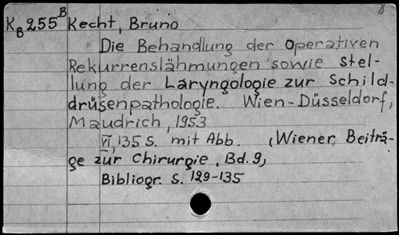 8
K_B 255^B Kecht, Bruno
Die Behandlung der Operativen
Rekurrenslähmungen sowie Stel-
lung der Laryngologie zur Schild-
drüsenpathologie. Wien-Düsseldorf,
Maudrich, 1953
VI, 135 S. mit Abb. (Wiener Beiträ-
ge zur Chirurgie, Bd. 9)
Bibliogr. S. 129-135